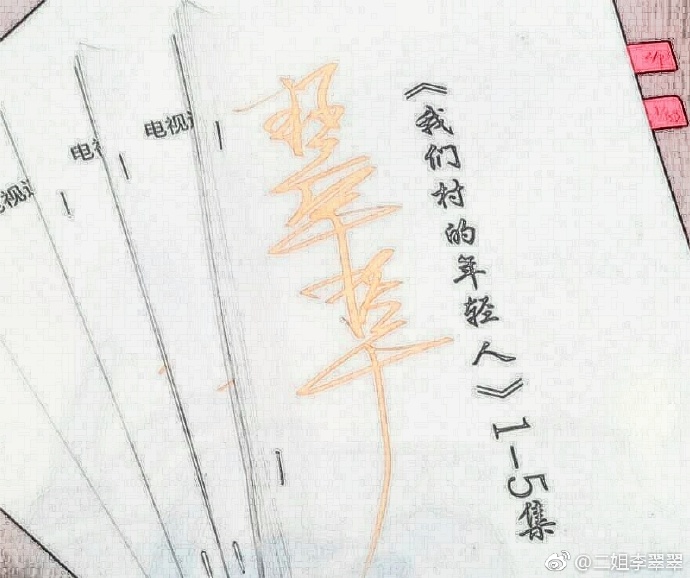 《我们村的年轻人》1-5集
翠翠
电视
电视
电视
@二姐李翠翠